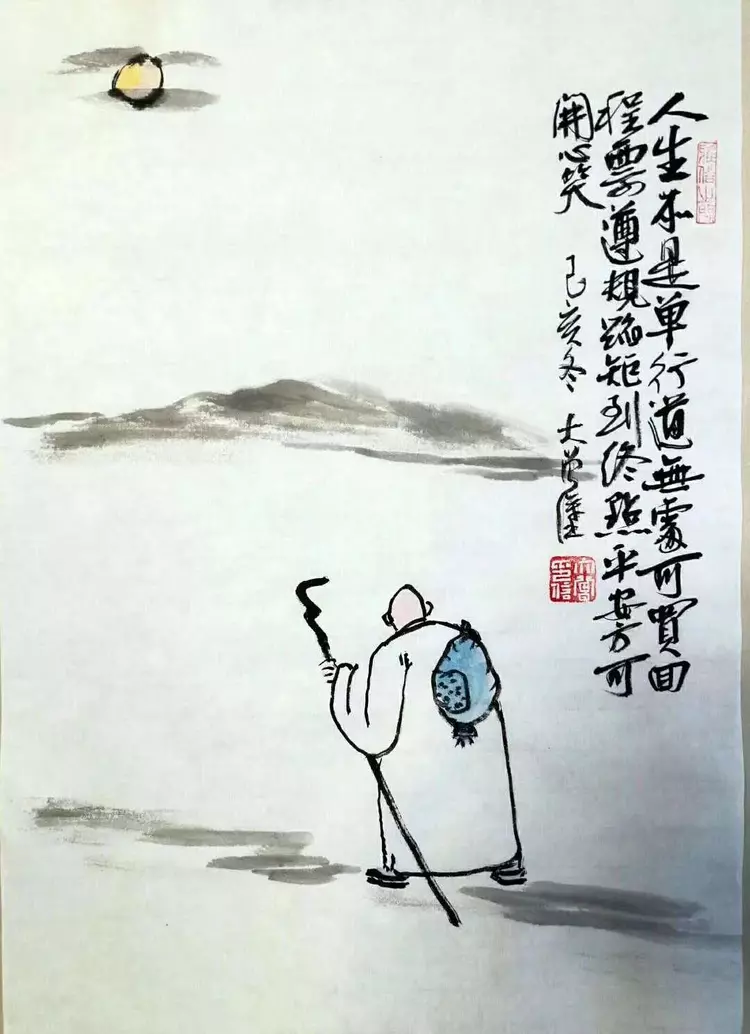 人生亦是单行道無處可買回
程票遵規蹈矩到終點平安方可
開心笑 己亥冬 大